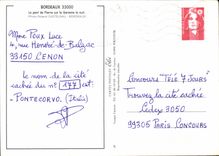 BORDEAUX 33000
Le pont de Pierre sur la Garonne la nuit
Mme Poux Luce
4, rue Honoré-de-Balzac
33150 CENON
Le nom de la cité
cachée du n° 177 est:
PONTECORVO. (Italie)
Concours TÉLÉ 7 JOURS
Trouvez la cité cachée
Cedex 3050
99305 PARIS CONCOURS